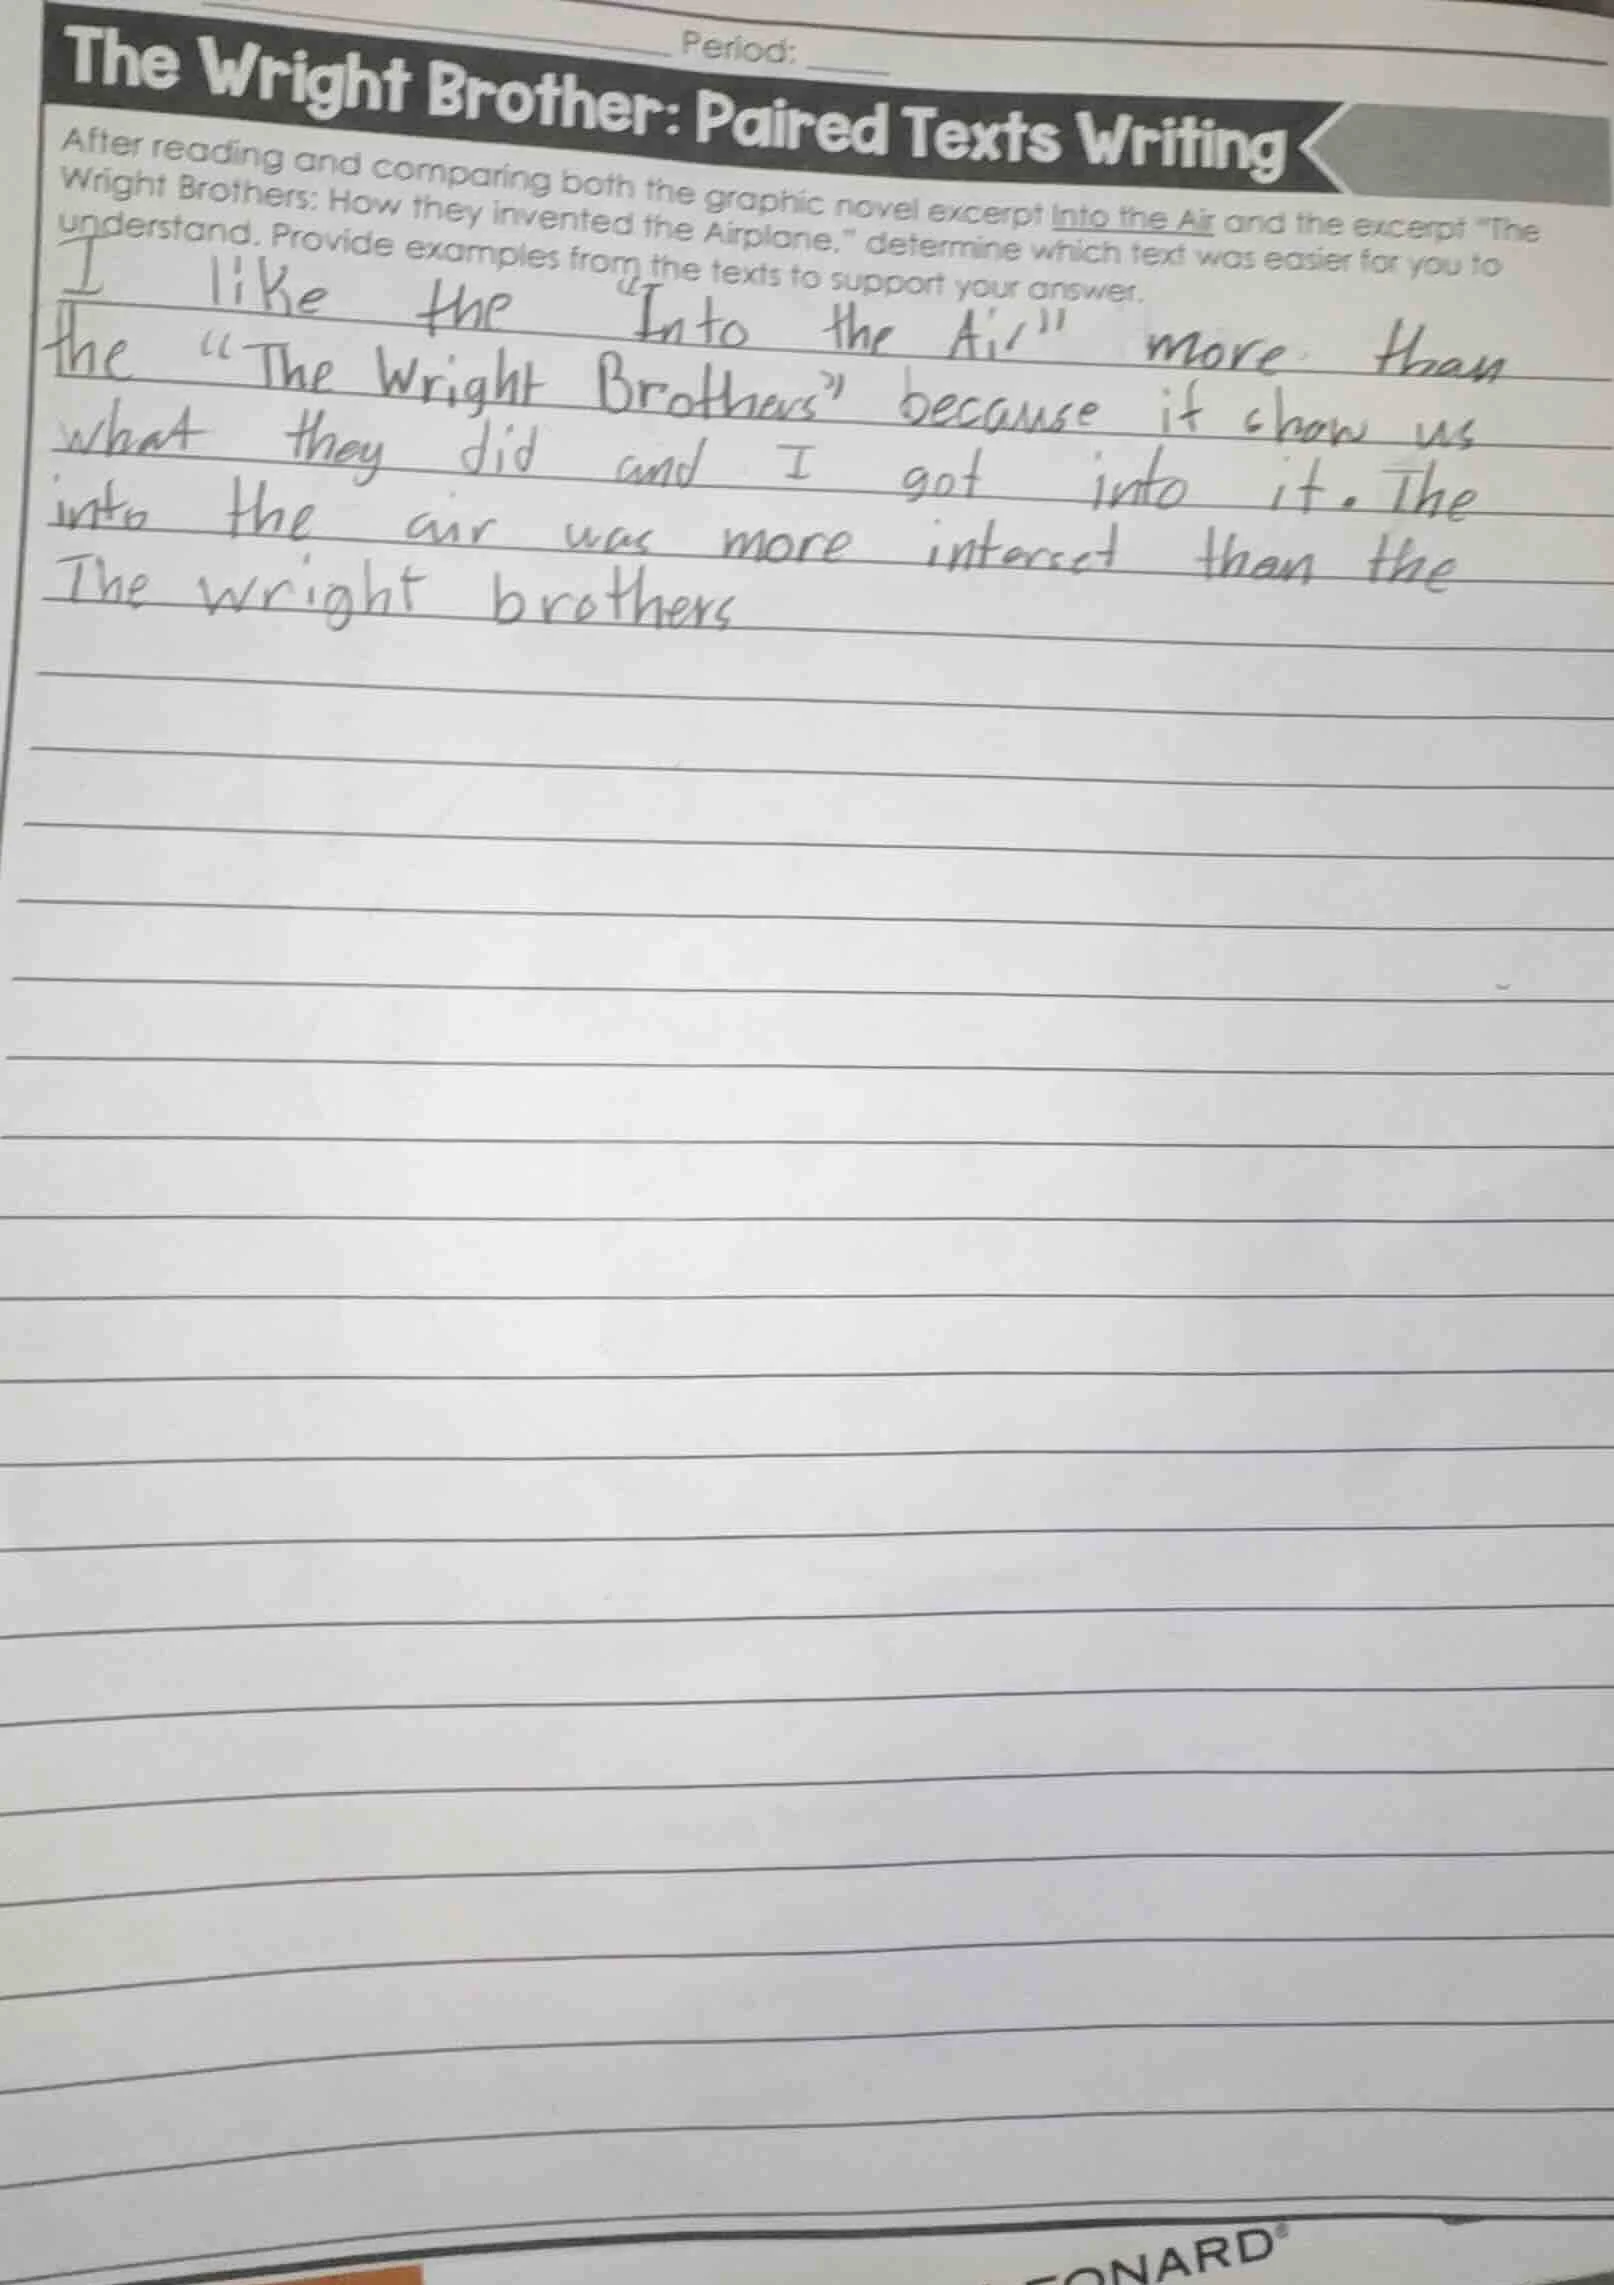 Period:
The Wright Brother: Paired Texts Writing
After reading and comparing both the graphic novel excerpt Into the Air and the excerpt "The
Wright Brothers: How they invented the Airplane," determine which text was easier for you to
understand. Provide examples from the texts to support your answer.
I like the "Into the Air" more than
the "The Wright Brothers" because it show us
what they did and I got into it. The
into the air was more interset than the
The wright brothers